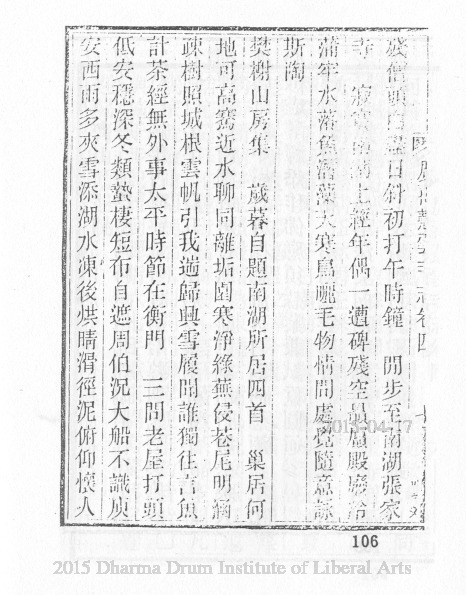 殘僧頭白 日斜初打午時鐘 閒步至南湖張家
寺 寂寞南湖上經年偶一遭碑殘空贔屭殿廢冷
蒲牢水落魚潛藻天寒鳥曬毛物情閒處覺隨意詠
斯陶
樊榭山房集 歲暮自題南湖所居四首 巢居何
地可高騫近水聊同離垢園寒淨綠蕪侵巷尾明涵
疎樹照城根雲帆引我遄歸興雪屐聞誰獨往言魚
計茶經無外事太平時節在衡門 三間老屋打頭
低安穩深冬類蟄棲短布自遮周伯況大船不識庾
安西雨多夾雪添湖水凍後烘晴滑徑泥俯仰懷人
卷四
2013-04-17
106
2015 Dharma Drum Institute of Liberal Arts